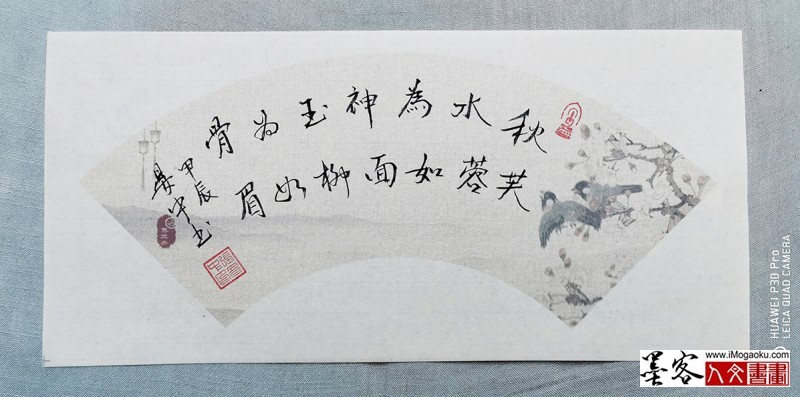 秋水為神玉为骨
芙蓉如面柳如眉
甲辰
中书
HUAWEI P30 Pro
LEICA QUAD CAMERA
墨客
www.iMogaoku.com
人文書畫